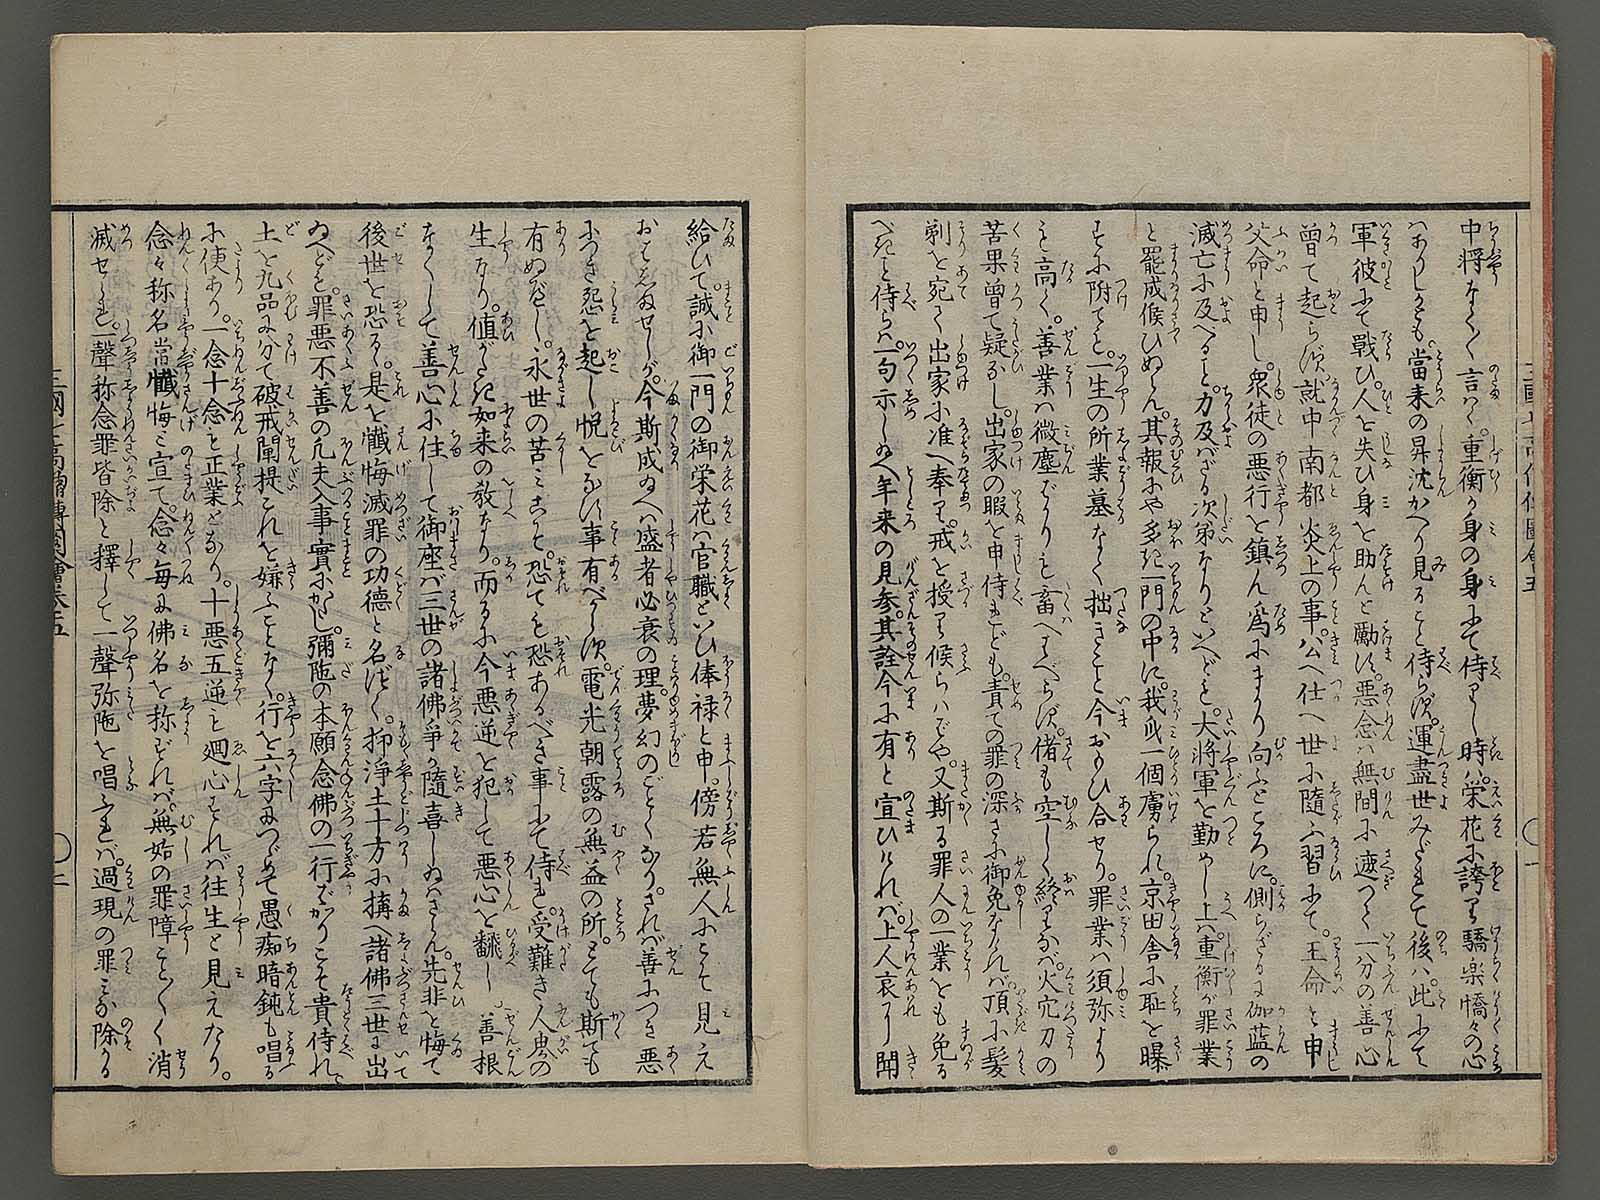 中将なく〳〵言はく。重衡が身の身にて侍りし時は。栄花に誇り驕楽憍々の心
のみありしかども。当来の昇沈かへり見ること侍らず。運尽世みだれて後は。此にて
軍彼にて戦ひ。人を失ひ身を助んと励ず。悪念は無間に遮りて一分の善心
曾て起らず。就中南都炎上の事。公へ仕へ世に随ふ習にて。王命と申
父命と申し。衆徒の悪行を鎮ん為にまかり向ふところに。側らざるに伽藍の
滅亡に及べること。力及ばざる次第なりといへども。大将軍を勤めし上は。重衡が罪業
と罷成候ひぬらん。其報にや多き一門の中に。我身一個虜られ。京田舎に恥を曝
すに附ても。一生の所業墓なく拙きこと今おもひ合せり。罪業は須弥より
も高く。善業は微塵ばかりも畜へはべらず。偖も空しく終りなば。火穴刀の
苦果曾て疑なし。出家の暇を申侍れども。責ての罪の深さに御免なければ。頂に髪
剃を宛て出家に准へ奉り。戒を授り候らはばや。又斯る罪人の一業をも免る
べきと侍らば。一句示し給へ年来の見参。其詮今に有と宣ひければ。上人哀に聞
給ひて。誠に御一門の御栄花は官職といひ俸禄と申。傍若無人にこそ見え
おはしませしが。今斯成給へば盛者必衰の理。夢幻のごとくなり。されば善につき悪
につき怨を起し悦をなす事有べからず。電光朝露の無益の所。とても斯ても
有ぬべし。永世の苦みこそ。恐ても恐あるべき事にて侍れ。受難き人界の
生なり。値がたき如来の教なり。而るに今悪逆を犯して悪心を翻し善根
なくして善心に住して御座ば三世の諸佛争か随喜し給はざらん。先非を悔て
後世を恐るゝ。是を懺悔滅罪の功徳と名づく。抑浄土十方に搆へ諸佛三世に出
給へども。罪悪不善の凡夫入事実にかたし。弥陀の本願念佛の一行ばかりこそ貴侍れ。
土を九品に分て破戒闡提これを嫌ふことなく。行を六字につゞめて愚痴暗鈍も唱る
に便あり。一念十念を正業となり。十悪五逆も廻心すれば往生と見えたり。
念々称名常懺悔と宣て。念々毎に佛名を称ずれば。無始の罪障こと〴〵く消
滅せられ。一聲称念罪皆除と釈して一聲弥陀を唱ふれば。過現の罪みな除かる
三國七高僧傳圖會巻五